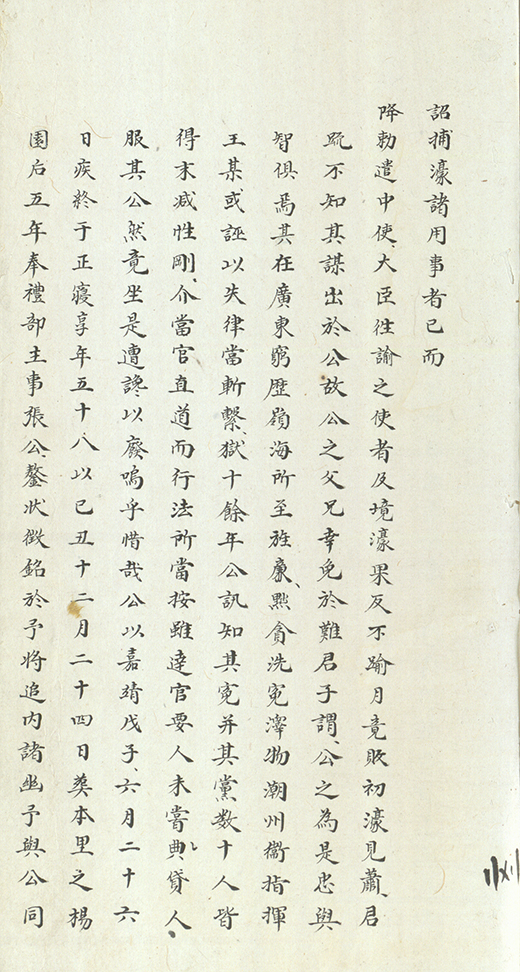 詔捕濠諸用事者已而
降勅遣中使大臣徃諭之使者及境濠果反不踰月竟敗初濠見蕭君
䟽不知其謀出於公故公之父兄幸免於難君子謂公之為是忠與
智俱焉其在廣東窮歷嶺海所至旌廉黜貪洗冤澤物潮州衞指揮
王某或誣以失律當斬繫獄十餘年公訊知其寃并其黨数十人皆
得末减性剛介當官直道而行法所當按雖達官要人未嘗典貸人
服其公然竟坐是遭讒以廢嗚乎惜哉公以嘉靖戊子六月二十六
日疾終于正寢享年五十八以己丑十二月二十四日葬本里之楊
園后五年奉禮部主事張公鏊状徴銘於予将追内諸幽予與公同